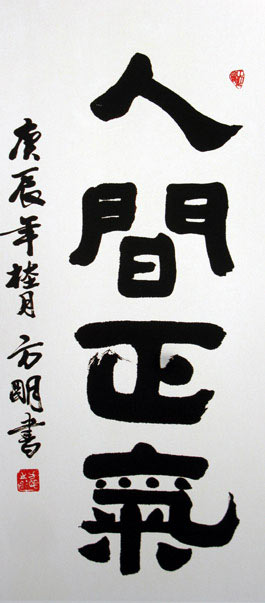 人間正氣
庚辰年桂月方明書